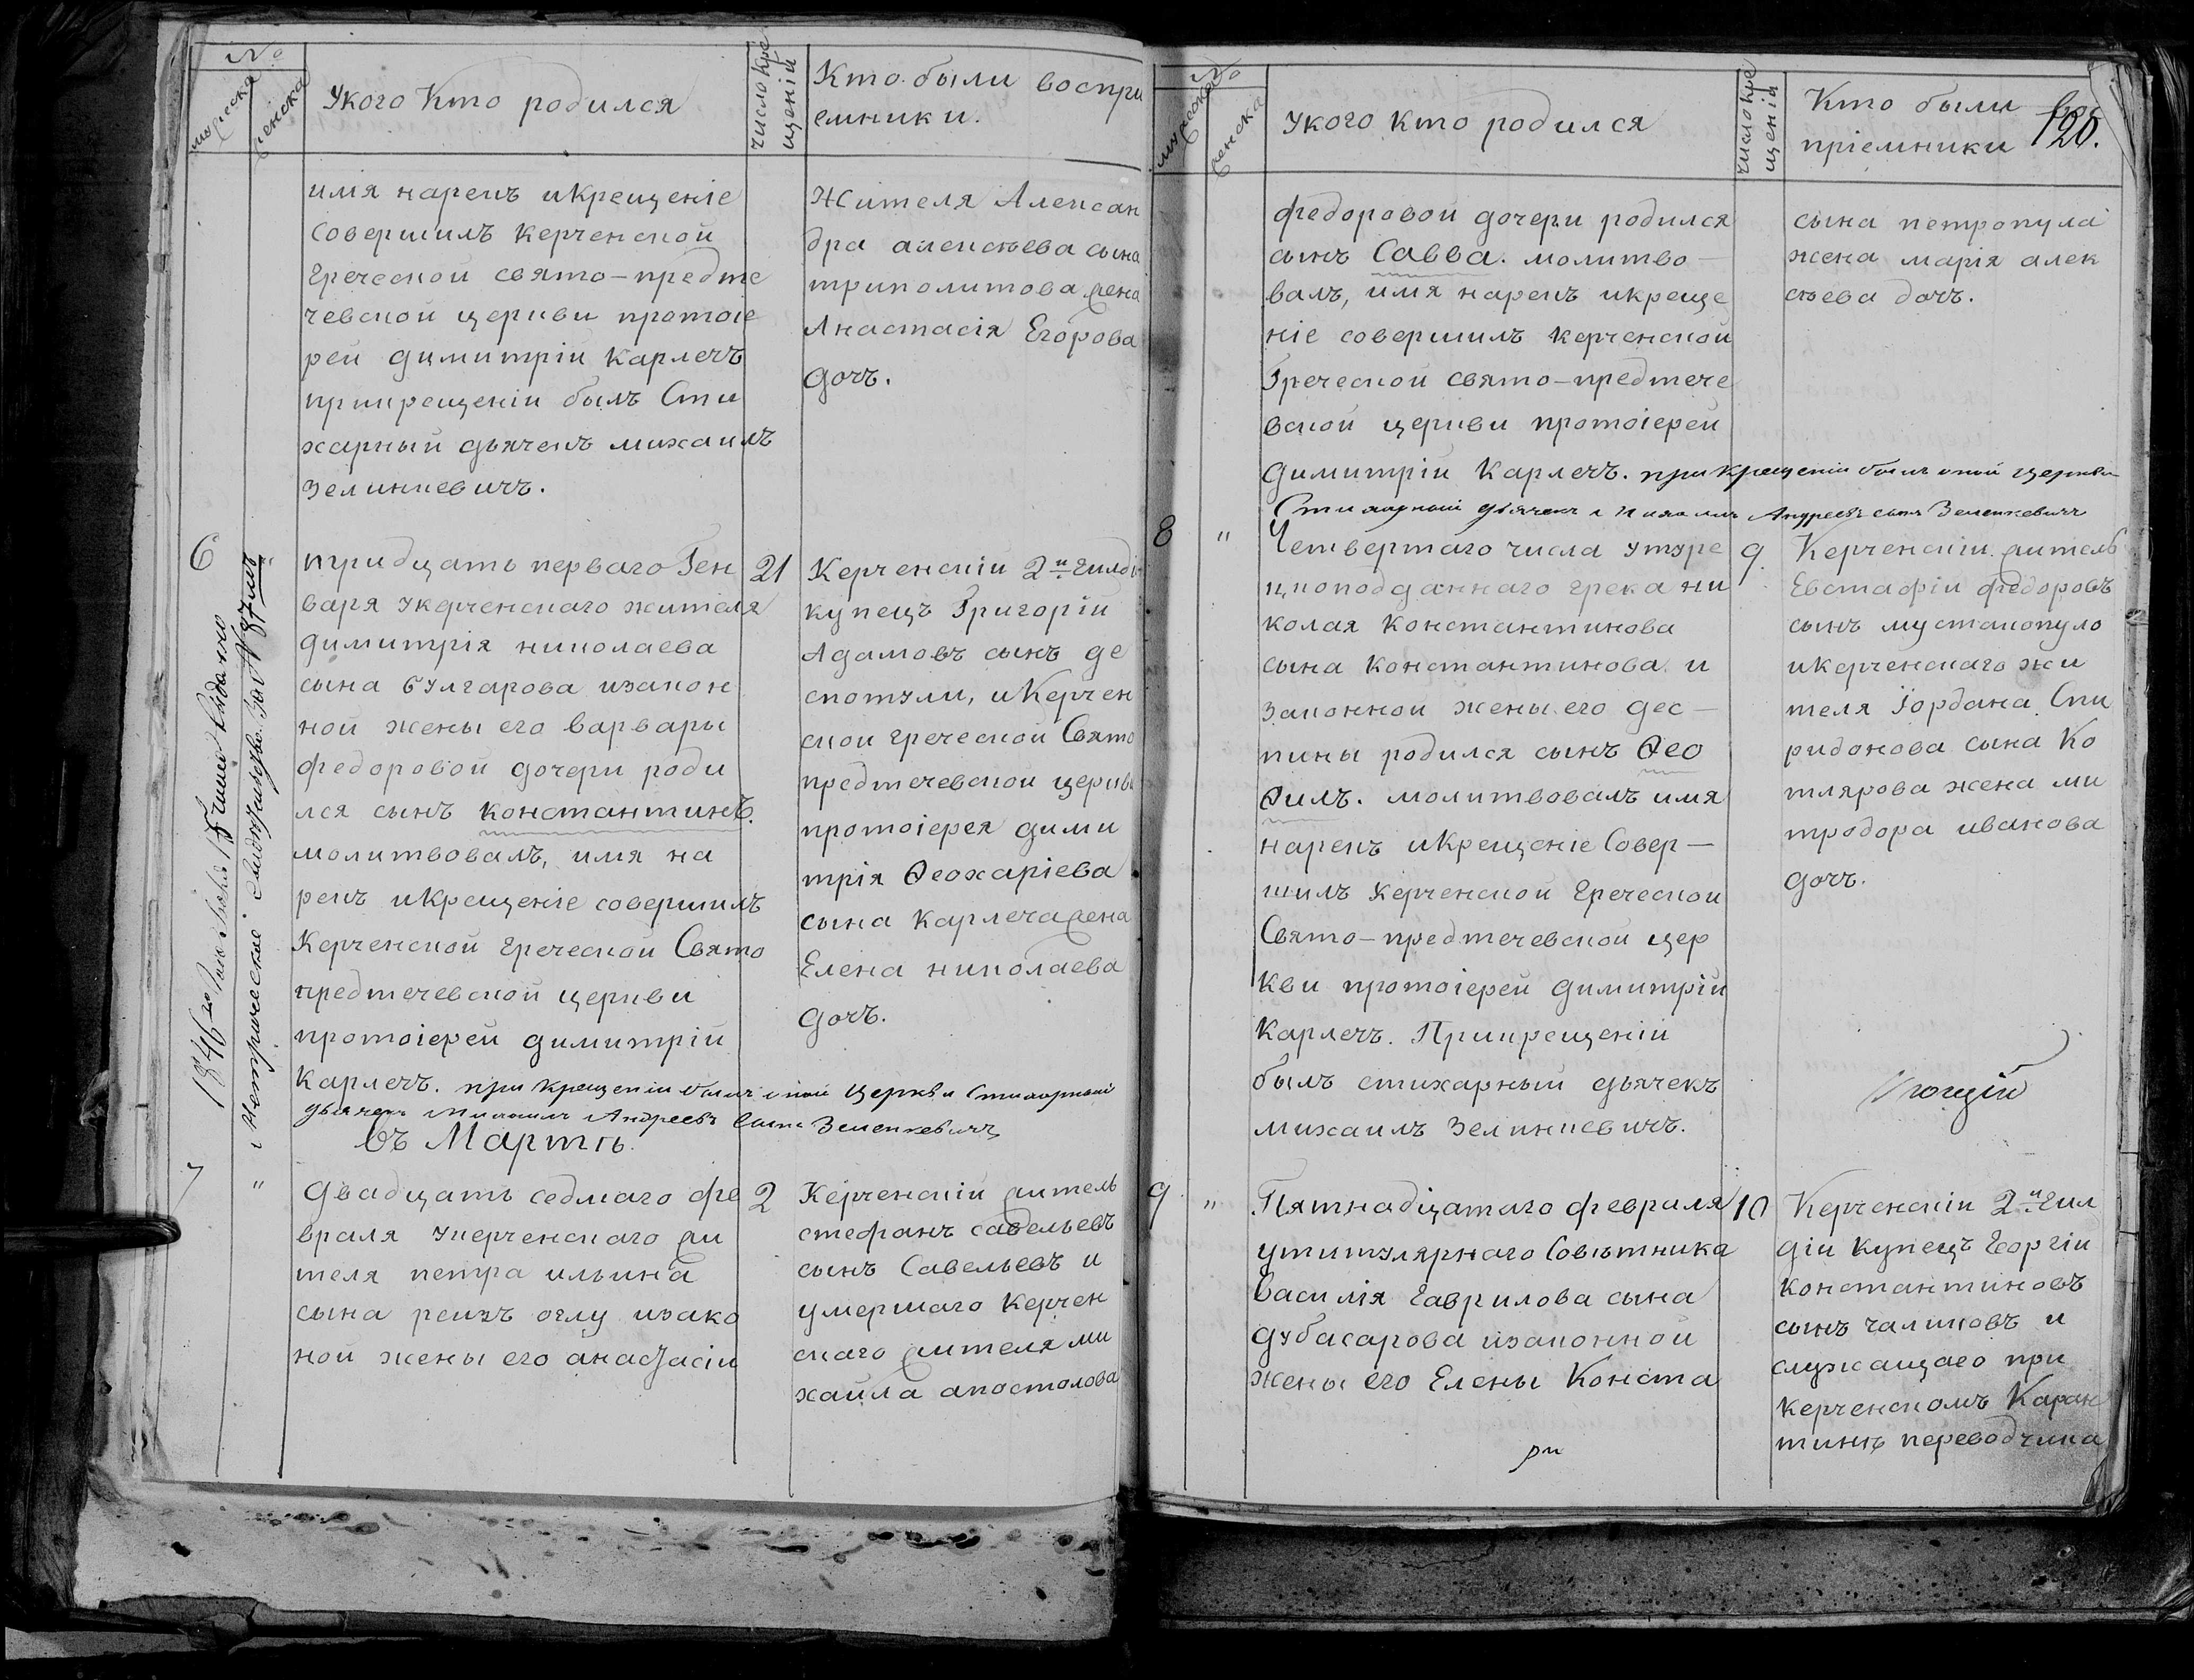 №
мужеска
женска
Укого Кто родился
число кре
щенія
Кто были воспри
емники.
имя нарекъ икрещеніе
совершилъ керченской
греческой свято-предте
чевской церкви протоіе
рей димитрій Карлечъ
прикрещеніи былъ Сти
харный дьячекъ михаилъ
Зелинкевичъ.
Жителя Алексан
дра алексѣева сына
триполитова жена
Анастасія Егорова
дочъ.
6
"
тридцать перваго Ген
варя укерченскаго жителя
димитрія николаева
сына булгарова изакон
ной жены его варвары
федоровой дочери роди
лся сынъ константинъ.
молитвовалъ, имя на
рекъ икрещеніе совершилъ
Керченской греческой Свято
предтечевской церкви
протоіерей димитрій
Карлечъ. при крещеніи былъ оной церкви Стихарный
дьячекъ Михаилъ Андреевъ сынъ Зеленкевичъ
21
Керченскій 2й гилдіи
купецъ Григорій
Адамовъ сынъ де
спотули, икерчен
ской греческой Свято
предтечевской церкви
протоіерея дими
трія Ѳеохаріева
сына карлеча жена
Елена николаева
дочъ.
въ Мартѣ.
7
"
двадцать седмаго фе
враля укерченскаго жи
теля петра ильина
сына реизъ оглу изако
ной жены его анастасіи
2
Керченскій житель
стефанъ савельевъ
сынъ Савельевъ и
умершаго керчен
скаго жителя ми
хаила апостолова
1846го года
Метрическое свидѣтельство
№
мужеска
женска
укого кто родился
число кре
щенія
Кто были вос
пріемники
120.
федоровой дочери родился
сынъ Савва. молитво-
валъ, имя нарекъ икреще
ніе совершилъ керченской
Греческой свято-предтече
вской церкви протоіерей
димитрій Карлечъ. при крещеніи былъ оной церкви
Стихарный дьячекъ Михаилъ Андреевъ сынъ Зеленкевичъ
сына петропула
жена марія алек
сѣева дочъ.
8
"
Четвертаго числа утуре
цкоподданнаго грека ни
колая Константинова
сына константинова и
законной жены его дес-
пины родился сынъ Ѳео
Ѳилъ. молитвовалъ имя
нарекъ икрещеніе Совер-
шилъ Керченской греческой
Свято-предтечевской цер
кви протоіерей димитрій
Карлечъ. Прикрещеніи
былъ стихарный дьячекъ
михаилъ Зелинкевичъ.
9
Керченскій житель
Евстафій федоровъ
сынъ мустакопуло
икерченскаго жи
теля Іордана Спи
ридонова сына Ко
тлярова жена ми
тродора иванова
дочъ.
9
"
Пятнадцатаго февраля
утитулярнаго Совѣтника
Василія гаврилова сына
дубасарова изаконной
жены его Елены Конста
10
Керченскій 2й гил
діи купецъ Георгій
Константиновъ
сынъ чаликовъ и
служащаго при
керченскомъ Каран
тинѣ переводчика